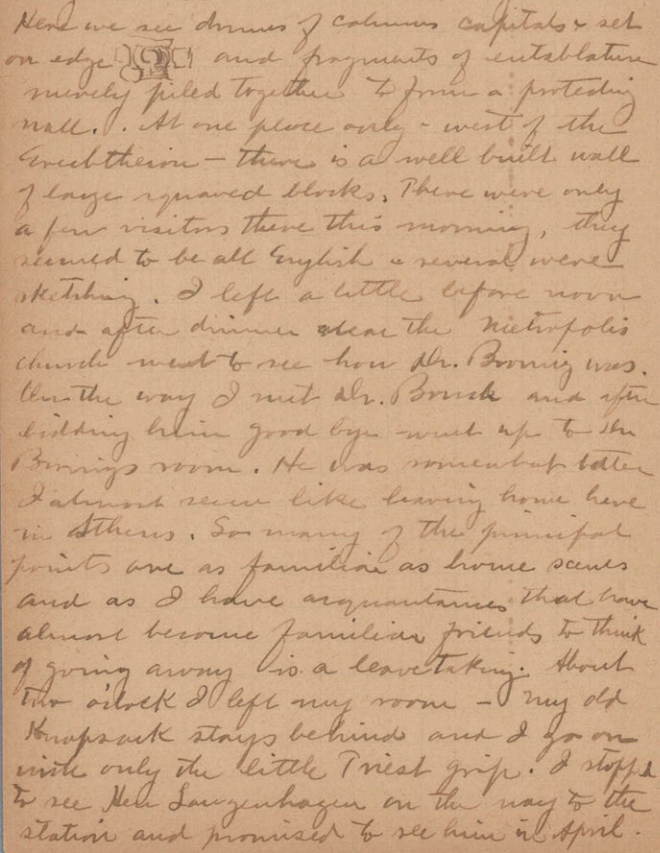 Here we see drums of columns capitals & set
on edge and fragments of entablature
merely piled together to form a protecting
wall. . At one place only - west of the
Erechtheion - there is a well built wall
of large squared blocks. There were only
a few visitors there this morning, they
seemed to be all English & several were
sketching. I left a little before noon
and after dinner near the Metropolis
church went to see how Dr. Bronig was.
On the way I met Dr. Bonsk and after
bidding him good bye went up to Dr
Bronigs room. He was somewhat better
I almost seem like leaving home here
in Athens. So many of the principal
points are as familiar as home scenes
and as I have acquantances that have
almost become familiar friends to think
of going away is a leavetaking. About
two o'clock I left my room - My old
Knapsack stays behind and I go on
with only the little Triest grip. I stopped
to see Herr Langenhagen on the way to the
station and promised to see him in April.